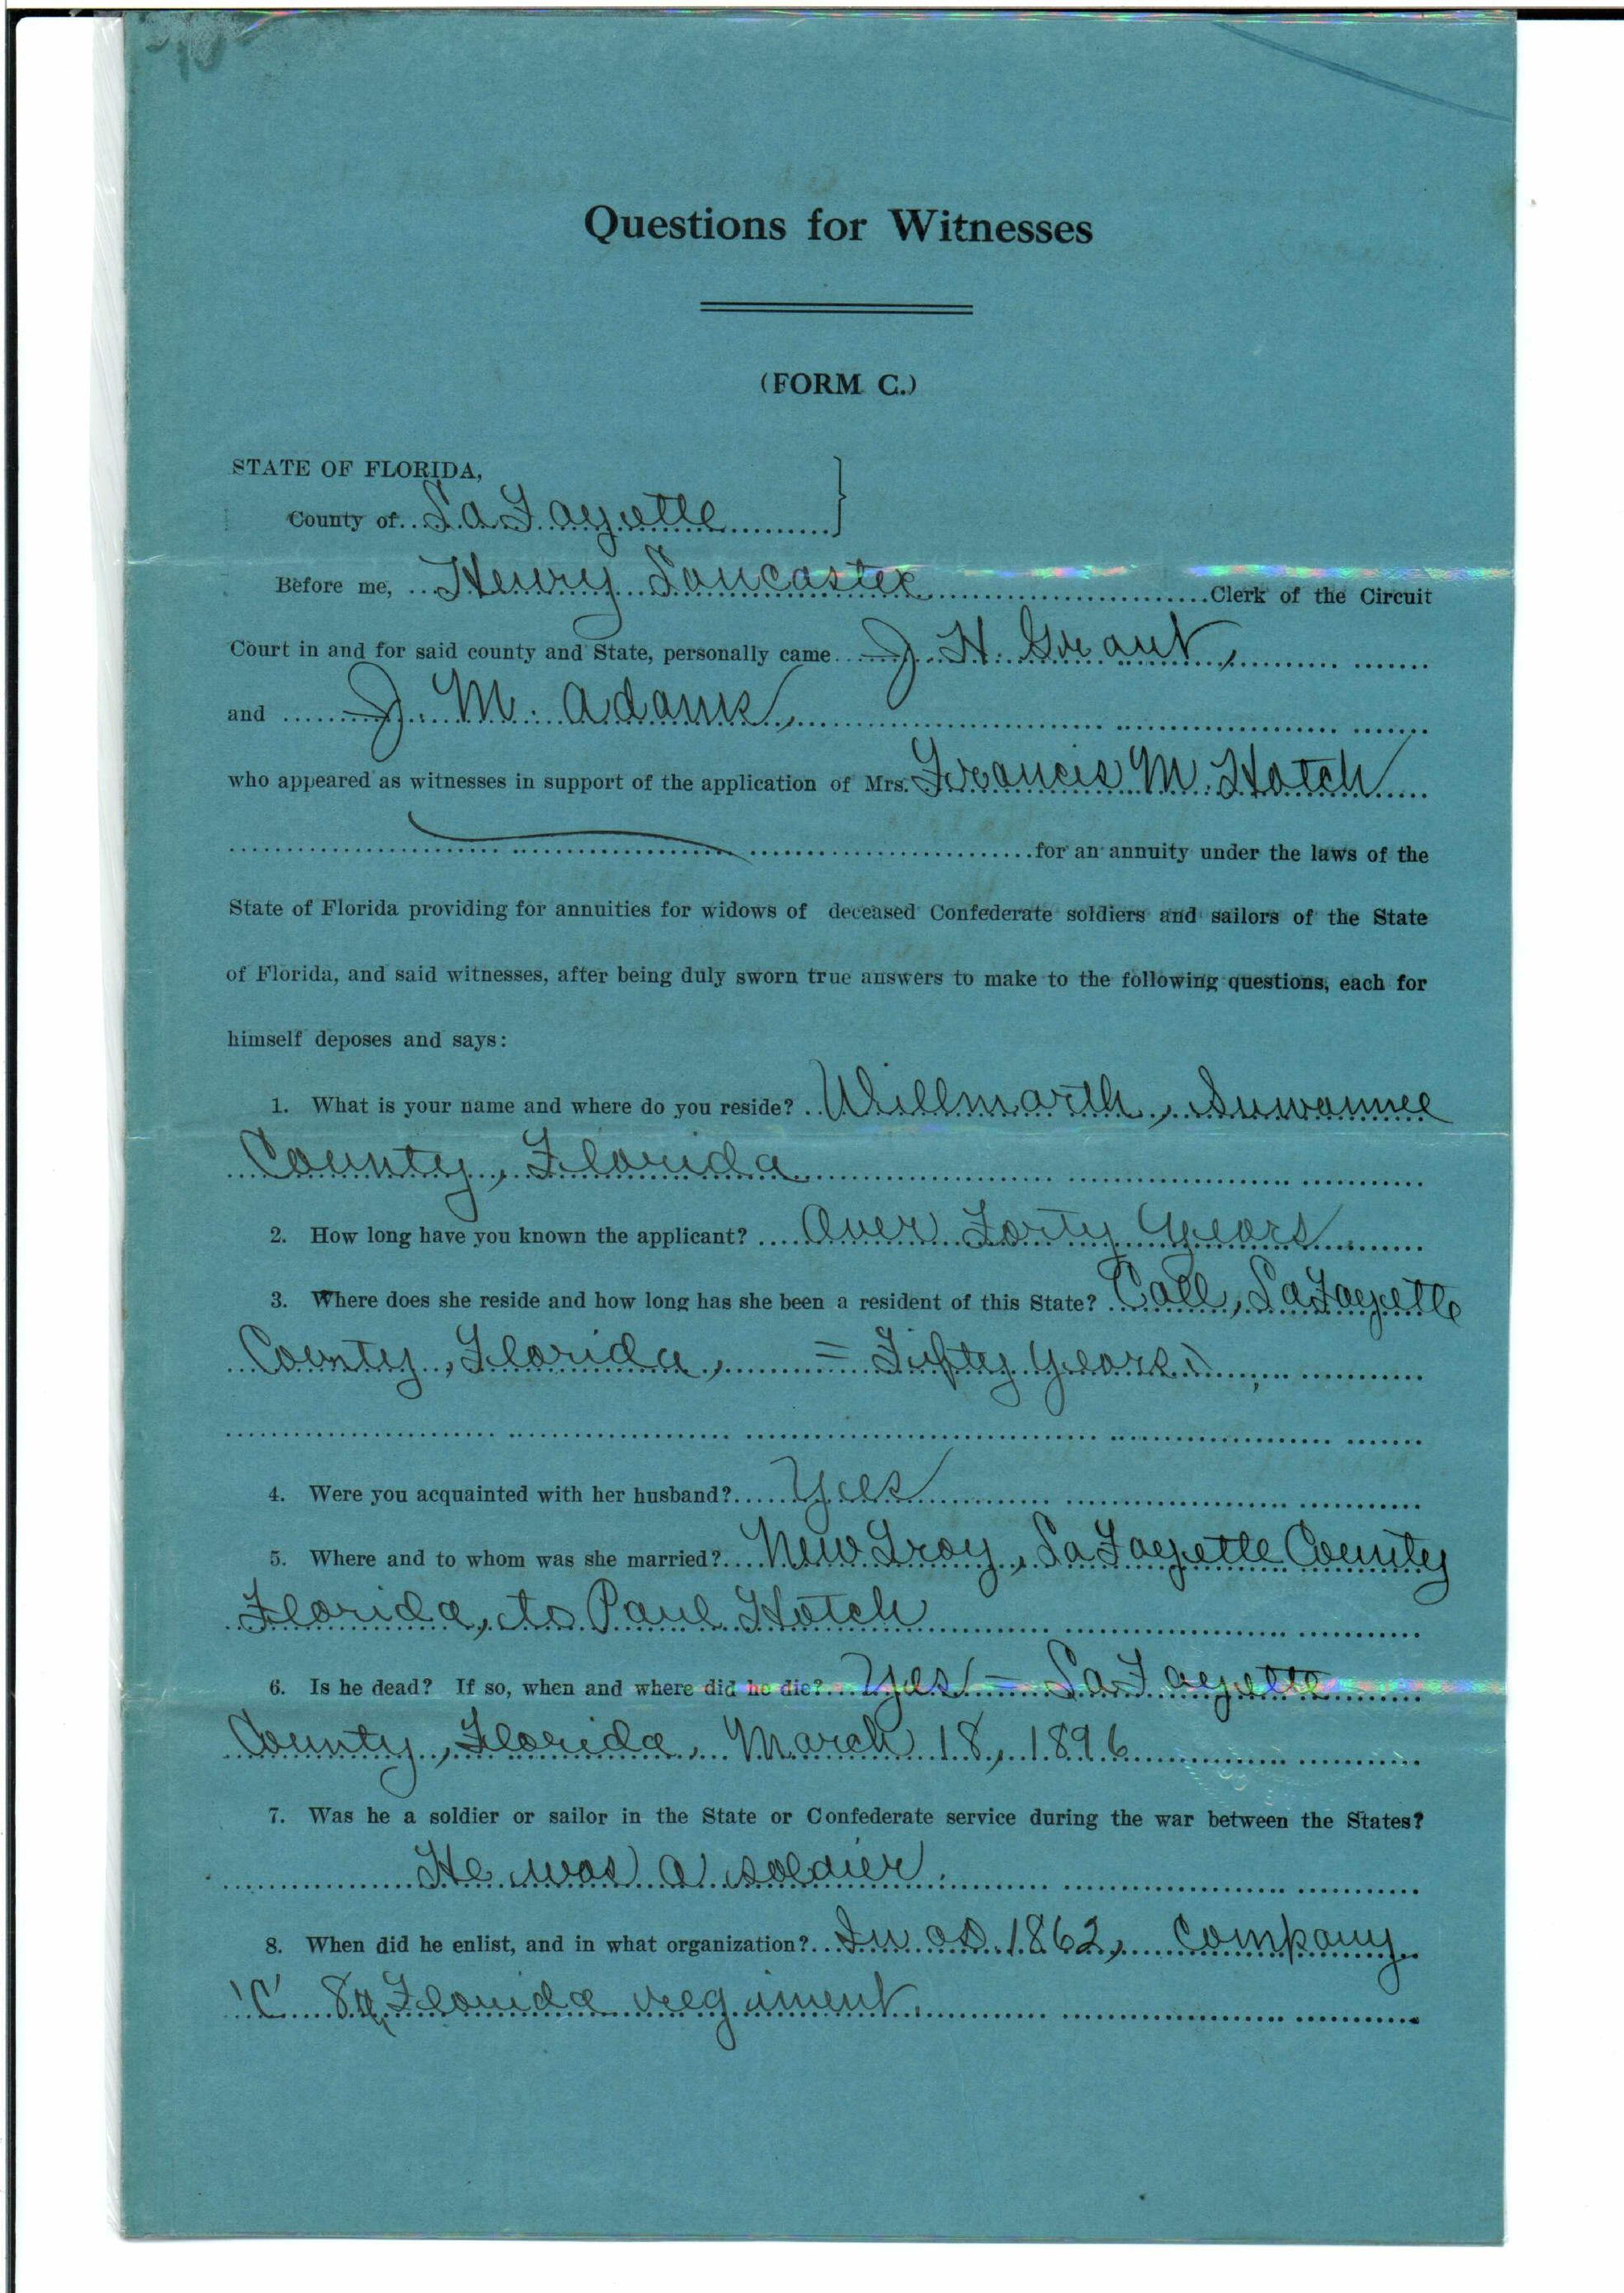 Questions for Witnesses
(FORM C.)
STATE OF FLORIDA,
County of LaFayette }
Before me, Henry Lancaster Clerk of the Circuit
Court in and for said county and State, personally came J. H. Grant,
and J. M. Adams,
who appeared as witnesses in support of the application of Mrs. Francis M. Hatch
for an annuity under the laws of the
State of Florida providing for annuities for widows of deceased Confederate soldiers and sailors of the State
of Florida, and said witnesses, after being duly sworn true answers to make to the following questions, each for
himself deposes and says:
1. What is your name and where do you reside? Willmarth, Suwannee
County, Florida
2. How long have you known the applicant? Over Forty Years
3. Where does she reside and how long has she been a resident of this State? Call, LaFayette
County, Florida, = Fifty years.
4. Were you acquainted with her husband? Yes
5. Where and to whom was she married? New Troy, LaFayette County
Florida, to Paul Hatch
6. Is he dead? If so, when and where did he die? Yes = LaFayette
County, Florida, March 18, 1896
7. Was he a soldier or sailor in the State or Confederate service during the war between the States?
He was a soldier.
8. When did he enlist, and in what organization? In AD 1862, Company
'C' 8th Florida regiment.